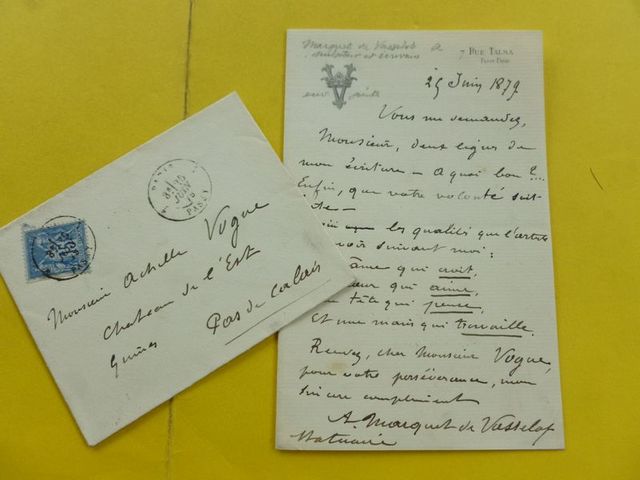 Marquet de Vasselot A
sculpteur et écrivain
7 RUE TALMA
25 Juin 1879
Vous me demandez,
Monsieur, deux lignes de
mon écriture - A quoi bon ?...
Enfin, que votre volonté soit
faite -
les qualités que l'artiste
avoir suivant moi:
âme qui croit,
cœur qui aime,
tête qui pense,
Et une main qui travaille.
Recevez, cher Monsieur Vogue,
pour votre persévérance, mon
sincère compliment
A. Marquet de Vasselot
Statuaire
PARIS
JUIN
PASSY
Monsieur Achille Vogue
Chateau de l'Est
Guines
Pas de Calais